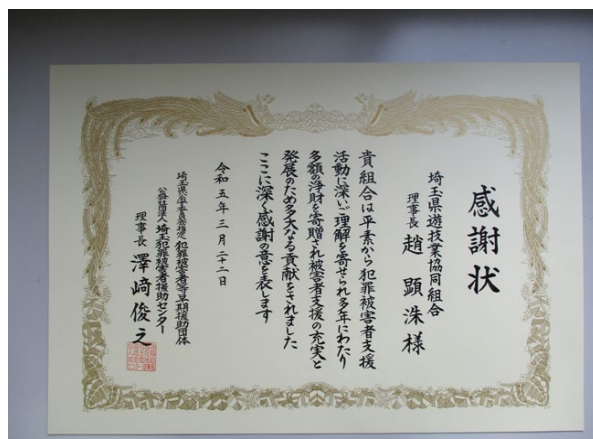 感謝状
埼玉県遊技業協同組合
理事長 趙 顕洙 様
貴組合は平素から犯罪被害者支援
活動に深いご理解を寄せられ多年にわたり
多額の浄財を寄贈され被害者支援の充実と
発展のため多大なる貢献をされました
ここに深く感謝の意を表します
令和五年三月二十二日
埼玉県公安委員会指定 犯罪被害者等早期援助団体
公益社団法人 埼玉犯罪被害者援助センター
理事長 澤﨑俊之